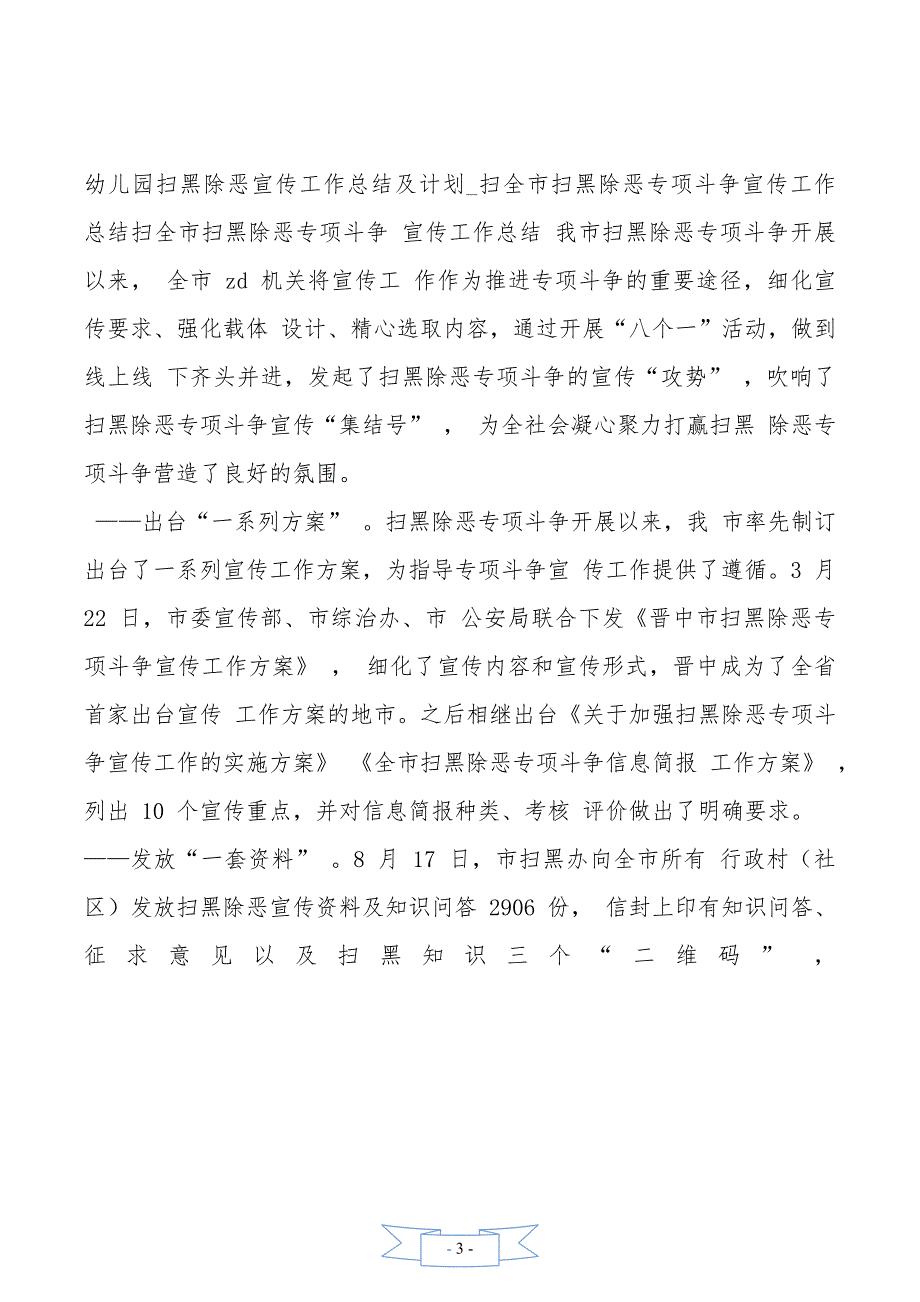 幼儿园扫黑除恶宣传工作总结及计划_扫全市扫黑除恶专项斗争宣传工作
总结扫全市扫黑除恶专项斗争 宣传工作总结 我市扫黑除恶专项斗争开展
以来， 全市 zd 机关将宣传工 作作为推进专项斗争的重要途径，细化宣
传要求、强化载体 设计、精心选取内容，通过开展“八个一”活动，做到
线上线 下齐头并进，发起了扫黑除恶专项斗争的宣传“攻势” ，吹响了
扫黑除恶专项斗争宣传“集结号” ， 为全社会凝心聚力打赢扫黑 除恶专
项斗争营造了良好的氛围。
——出台“一系列方案” 。扫黑除恶专项斗争开展以来，我 市率先制订
出台了一系列宣传工作方案，为指导专项斗争宣 传工作提供了遵循。3 月
22 日，市委宣传部、市综治办、市 公安局联合下发《晋中市扫黑除恶专
项斗争宣传工作方案》 ， 细化了宣传内容和宣传形式，晋中成为了全省
首家出台宣传 工作方案的地市。之后相继出台《关于加强扫黑除恶专项斗
争宣传工作的实施方案》 《全市扫黑除恶专项斗争信息简报 工作方案》 ，
列出 10 个宣传重点，并对信息简报种类、考核 评价做出了明确要求。
——发放“一套资料” 。8 月 17 日，市扫黑办向全市所有 行政村（社
区）发放扫黑除恶宣传资料及知识问答 2906 份， 信封上印有知识问答、
征求意见以及扫黑知识三个“二维码”，
- 3 -